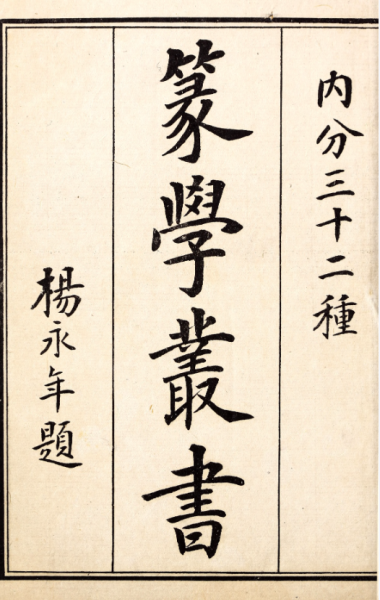 内分三十二種
篆學叢書
楊永年題